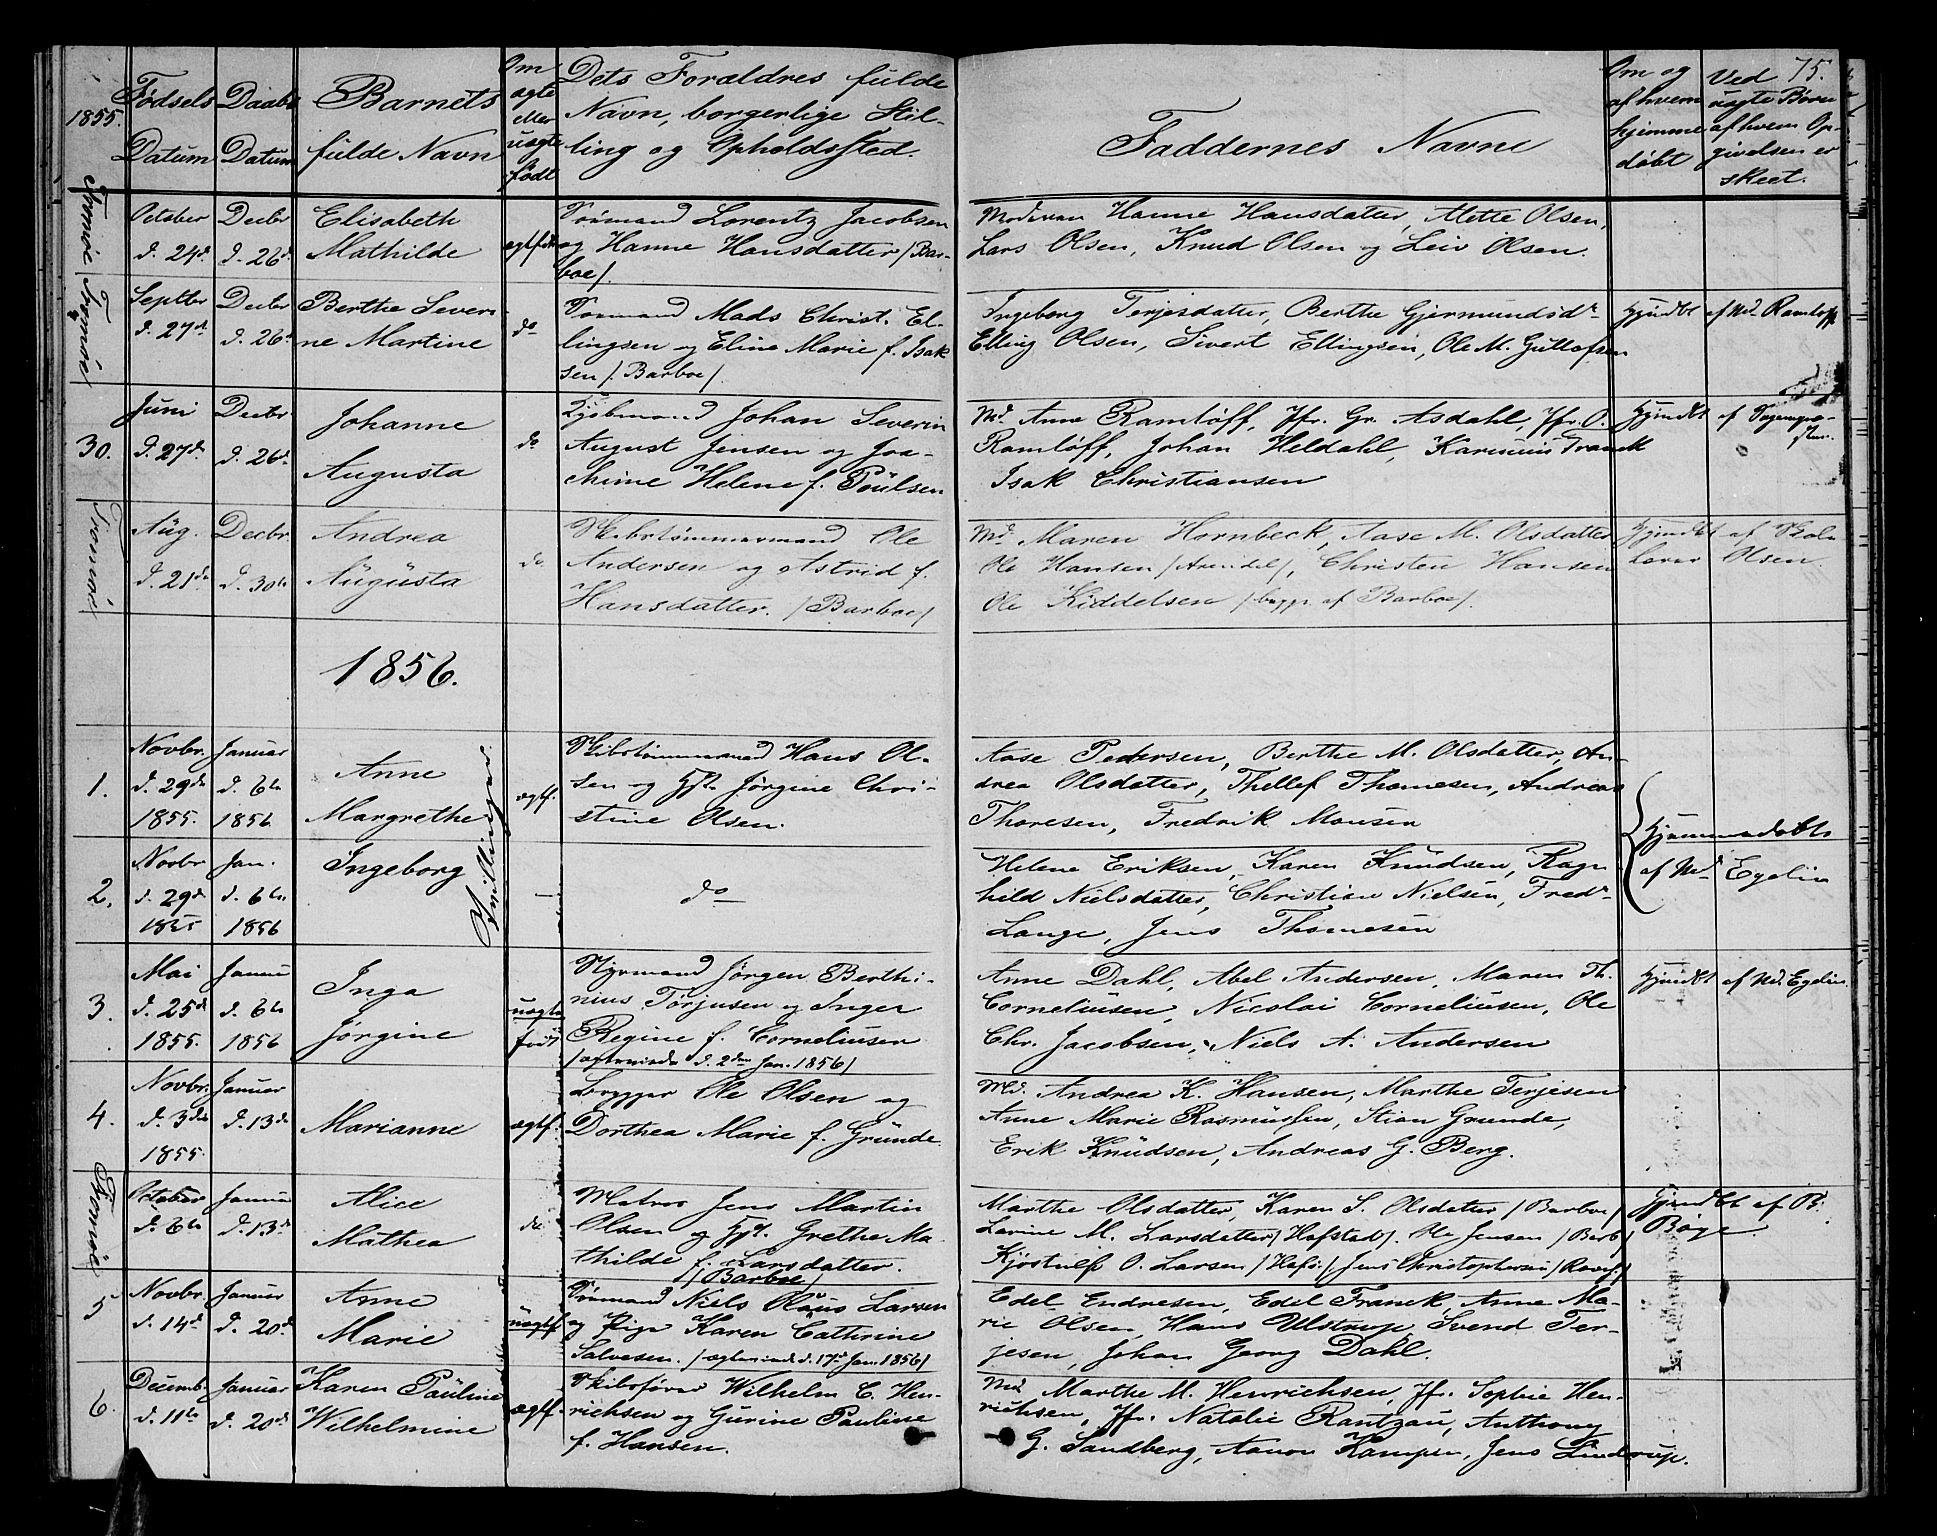 75.
1855.
Fødsels Datum
Daabs Datum
Barnets fulde Navn
Om ægte eller uægte født
Dets Forældres fulde
Navn, borgerlige Stil-
ling og Opholdssted.
Faddernes Navne
Om og af hvem hjemme døbt
Ved uægte Børn af hvem Op-
givelsen er skeet.
Tromøe
October d. 24d
Decbr d. 26d
Elisabeth
Mathilde
ægtfdt
Lorentz Jacobsen
og Hanne Hansdatter /Bar-
boe/
Moderen Hanne Hansdatter, Alette Olsen,
Lars Olsen, Knud Olsen og Leiv Olsen.
Tromøe
Septbr d. 27de
Decbr d. 26d
Berthe Severi-
ne Martine
do
Mads Christ. El-
lingsen og Eline Marie f. Isak
sen /Barboe/.
Ingeborg Terjesdatter, Berthe Gjermundsdr
Elling Olsen, Sivert Ellingsen, Ole M. Guttofsen
Hjmdbt af Md Ramløff
30.
Juni d. 27de
Decbr d. 26d
Johanne
Augusta
do
Kjøbmand Johan Severin
August Jensen og Joa-
chime Helene f. Poulsen
Md. Anne Ramløff, Jfr. Gr. Asdahl, Jfr. O.
Ramløff, Johan Heldahl, Karinius Franck
Isak Christiansen
Hjmdbt af
Tromøe
Aug. d. 21de
Decbr. d. 30te
Andrea
Augusta
do
Skibstømmermand Ole
Andersen og Astrid f.
Hansdatter. /Barboe/
Md Maren Hornbeck, Aase M. Olsdatter
Ole Hansen /Arendal/, Christen Hansen
Ole Kiddelsen /begge af Barboe/.
Hjmdbt af Skole
lærer Olsen.
1856.
1.
Novbr. d. 29de 1855.
Januar d. 6te 1856
Anne
Margrethe
Tvillinger.
ægtf.
Skibstømmermand Hans Ol-
sen og Hst. Jørgine Chri-
stine Olsen.
Aase Pedersen, Berthe M. Olsdatter, An-
drea Olsdatter, Thellef Thomesen, Andreas
Thoresen, Fredrik Monsen
Hjemmedøbte
af Md Egelie
2.
Novbr d. 29d 1855
Jan. d. 6te 1856
Ingeborg
—
do
Helene Eriksen, Karen Knudsen, Ragn-
hild Nielsdatter, Christian Nielsen, Fredr
Lange, Jens Thomesen
3.
Mai d. 25d 1855.
Januar d. 6te 1856
Inga
Jørgine
uægte født
Styrmand Jørgen Berthi-
nius Torjusen og Inger
Regine f. Corneliusen
/ægteviede d. 2den Jan. 1856/
Anne Dahl, Abel Andersen, Maren Th.
Corneliusen, Nicolai Corneliusen, Ole
Chr. Jacobsen, Niels A. Andersen
Hjmdbt af Md. Egelie
4.
Novbr. d. 3die 1855.
Januar d. 13de
Marianne
ægtf.
Brygger Ole Olsen og
Dorthea Marie f. Grunde
Md. Andrea K. Hansen, Marthe Terjesen
Anne Marie Rasmussen, Stian Grunde,
Erik Knudsen, Andreas G. Berg.
Tromøe
October d. 6te
Januar d. 13de
Alice
Mathea
do.
Matros Jens Martin
Olsen og Hst. Grethe Ma
thilde f. Larsdatter.
/Barboe/
Marthe Olsdatter, Karen S. Olsdatter /Barboe/
Lavine M. Larsdatter /Hafstad/. Ole Jensen /Barb/
Kjøstulf O. Larsen /Hafs./ Jens Christophersen
Hjmdbt af
Bøge.
5
Novbr. d. 14d
Januar d. 20d
Anne
Marie
uægtf.
Niels Olaus Larsen
og Pige Karen Cathrine
Salvesen. /ægteviede d. 17de Jan. 1856/
Edel Endresen, Edel Franck, Anne Ma-
rie Olsen, Hans Ulstrup, Svend Ter-
jesen, Johan Georg Dahl.
6.
Decemb. d. 11te
Januar d. 20d
Karen Pauline
Wilhelmine
ægtf.
Skibsfører Wilhelm C. Hen-
richsen og Gurine Pauline
f. Hansen.
Md Marthe M. Henrichsen, Jfr. Sophie Hen-
richsen, Jfr. Natalie Rantzau, Anthony
G. Sandberg, Aanon Kampen, Jens Lindrup.